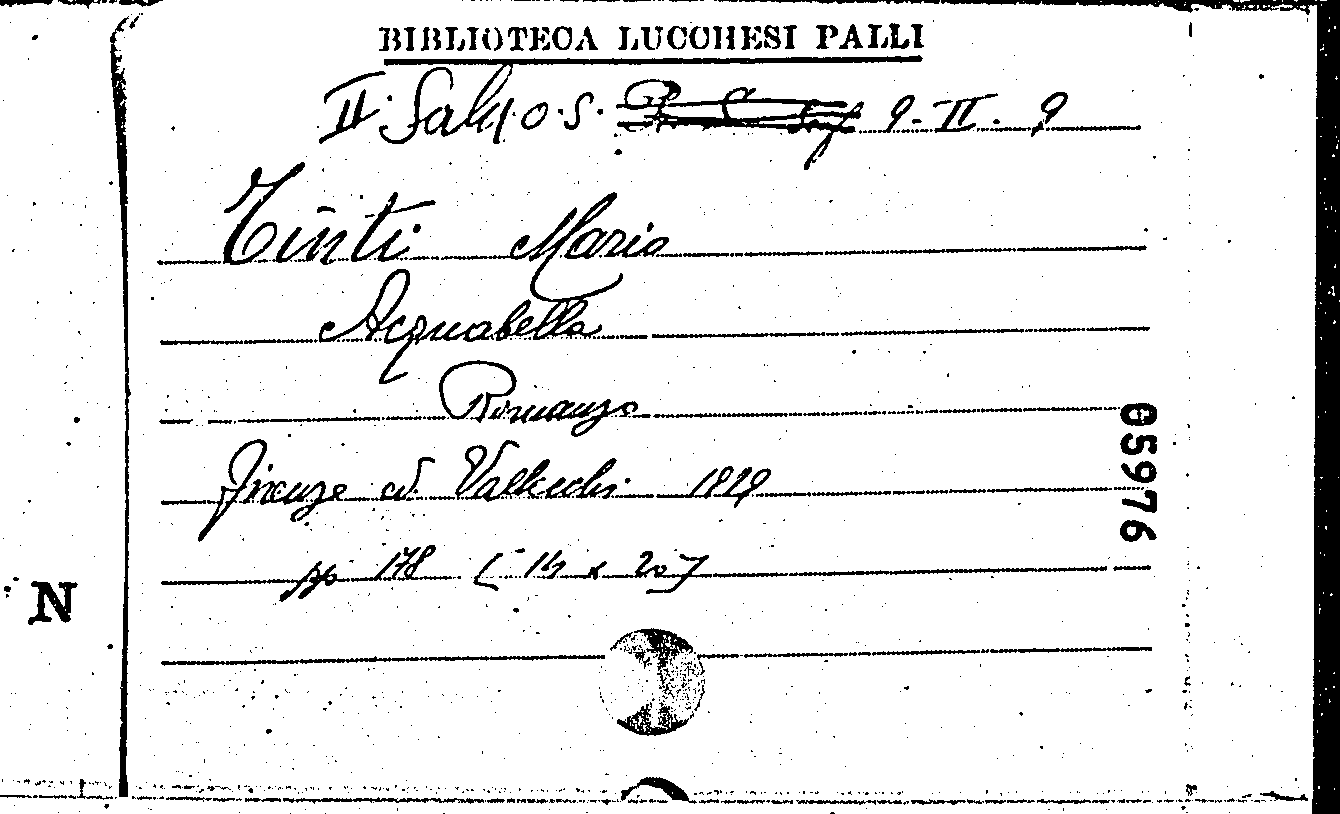 BIBLIOTECA LUCCHESI PALLI
II. Sala O.S. 9-II. 9
Tinti Mario
Acquabella
Romanzo
Firenze ed. Vallecchi 1929
pp 178 (14 x 20)
05976
N